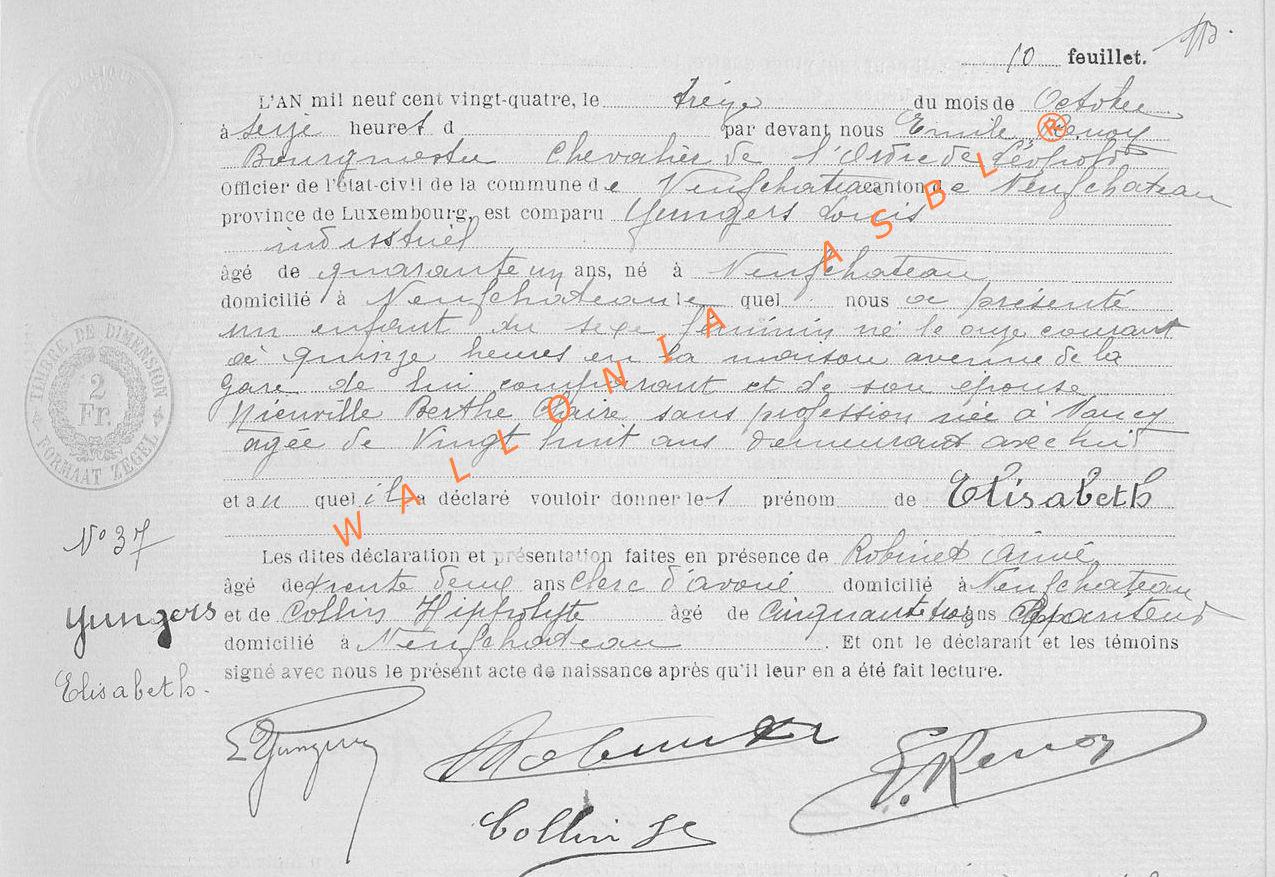 10 feuillet.
L'AN mil neuf cent vingt-quatre, le treize du mois de Octobre
à seize heures d par devant nous Emile Renoy
Bourgmestre Chevalier de l'Ordre de Léopold
Officier de l'état-civil de la commune de Neufchateau canton de Neufchateau
province de Luxembourg, est comparu Yungers Louis
industriel
âgé de quarante un ans, né à Neufchateau
domicilié à Neufchateau lequel nous a présenté
un enfant du sexe féminin né le onze courant
à quinze heures en la maison avenue de la
Gare de lui comparant et de son épouse
Nienville Berthe Claire sans profession née à Nancy
agée de Vingt huit ans demeurant avec lui
et au quel il a déclaré vouloir donner le s prénom de Elisabeth
Les dites déclaration et présentation faites en présence de Robinet Aimé
âgé de trente deux ans Clerc d'avoué domicilié à Neufchateau
et de Collin Hippolyte âgé de Cinquante trois ans
domicilié à Neufchateau. Et ont le déclarant et les témoins
signé avec nous le présent acte de naissance après qu'il leur en a été fait lecture.
N° 37
Yungers
Elisabeth.
L Yungers
Robinet
E. Renoy
Collin
TIMBRE DE DIMENSION
2 Fr.
FORMAAT ZEGEL
BELGIQUE
WALLONIA ASBL ®